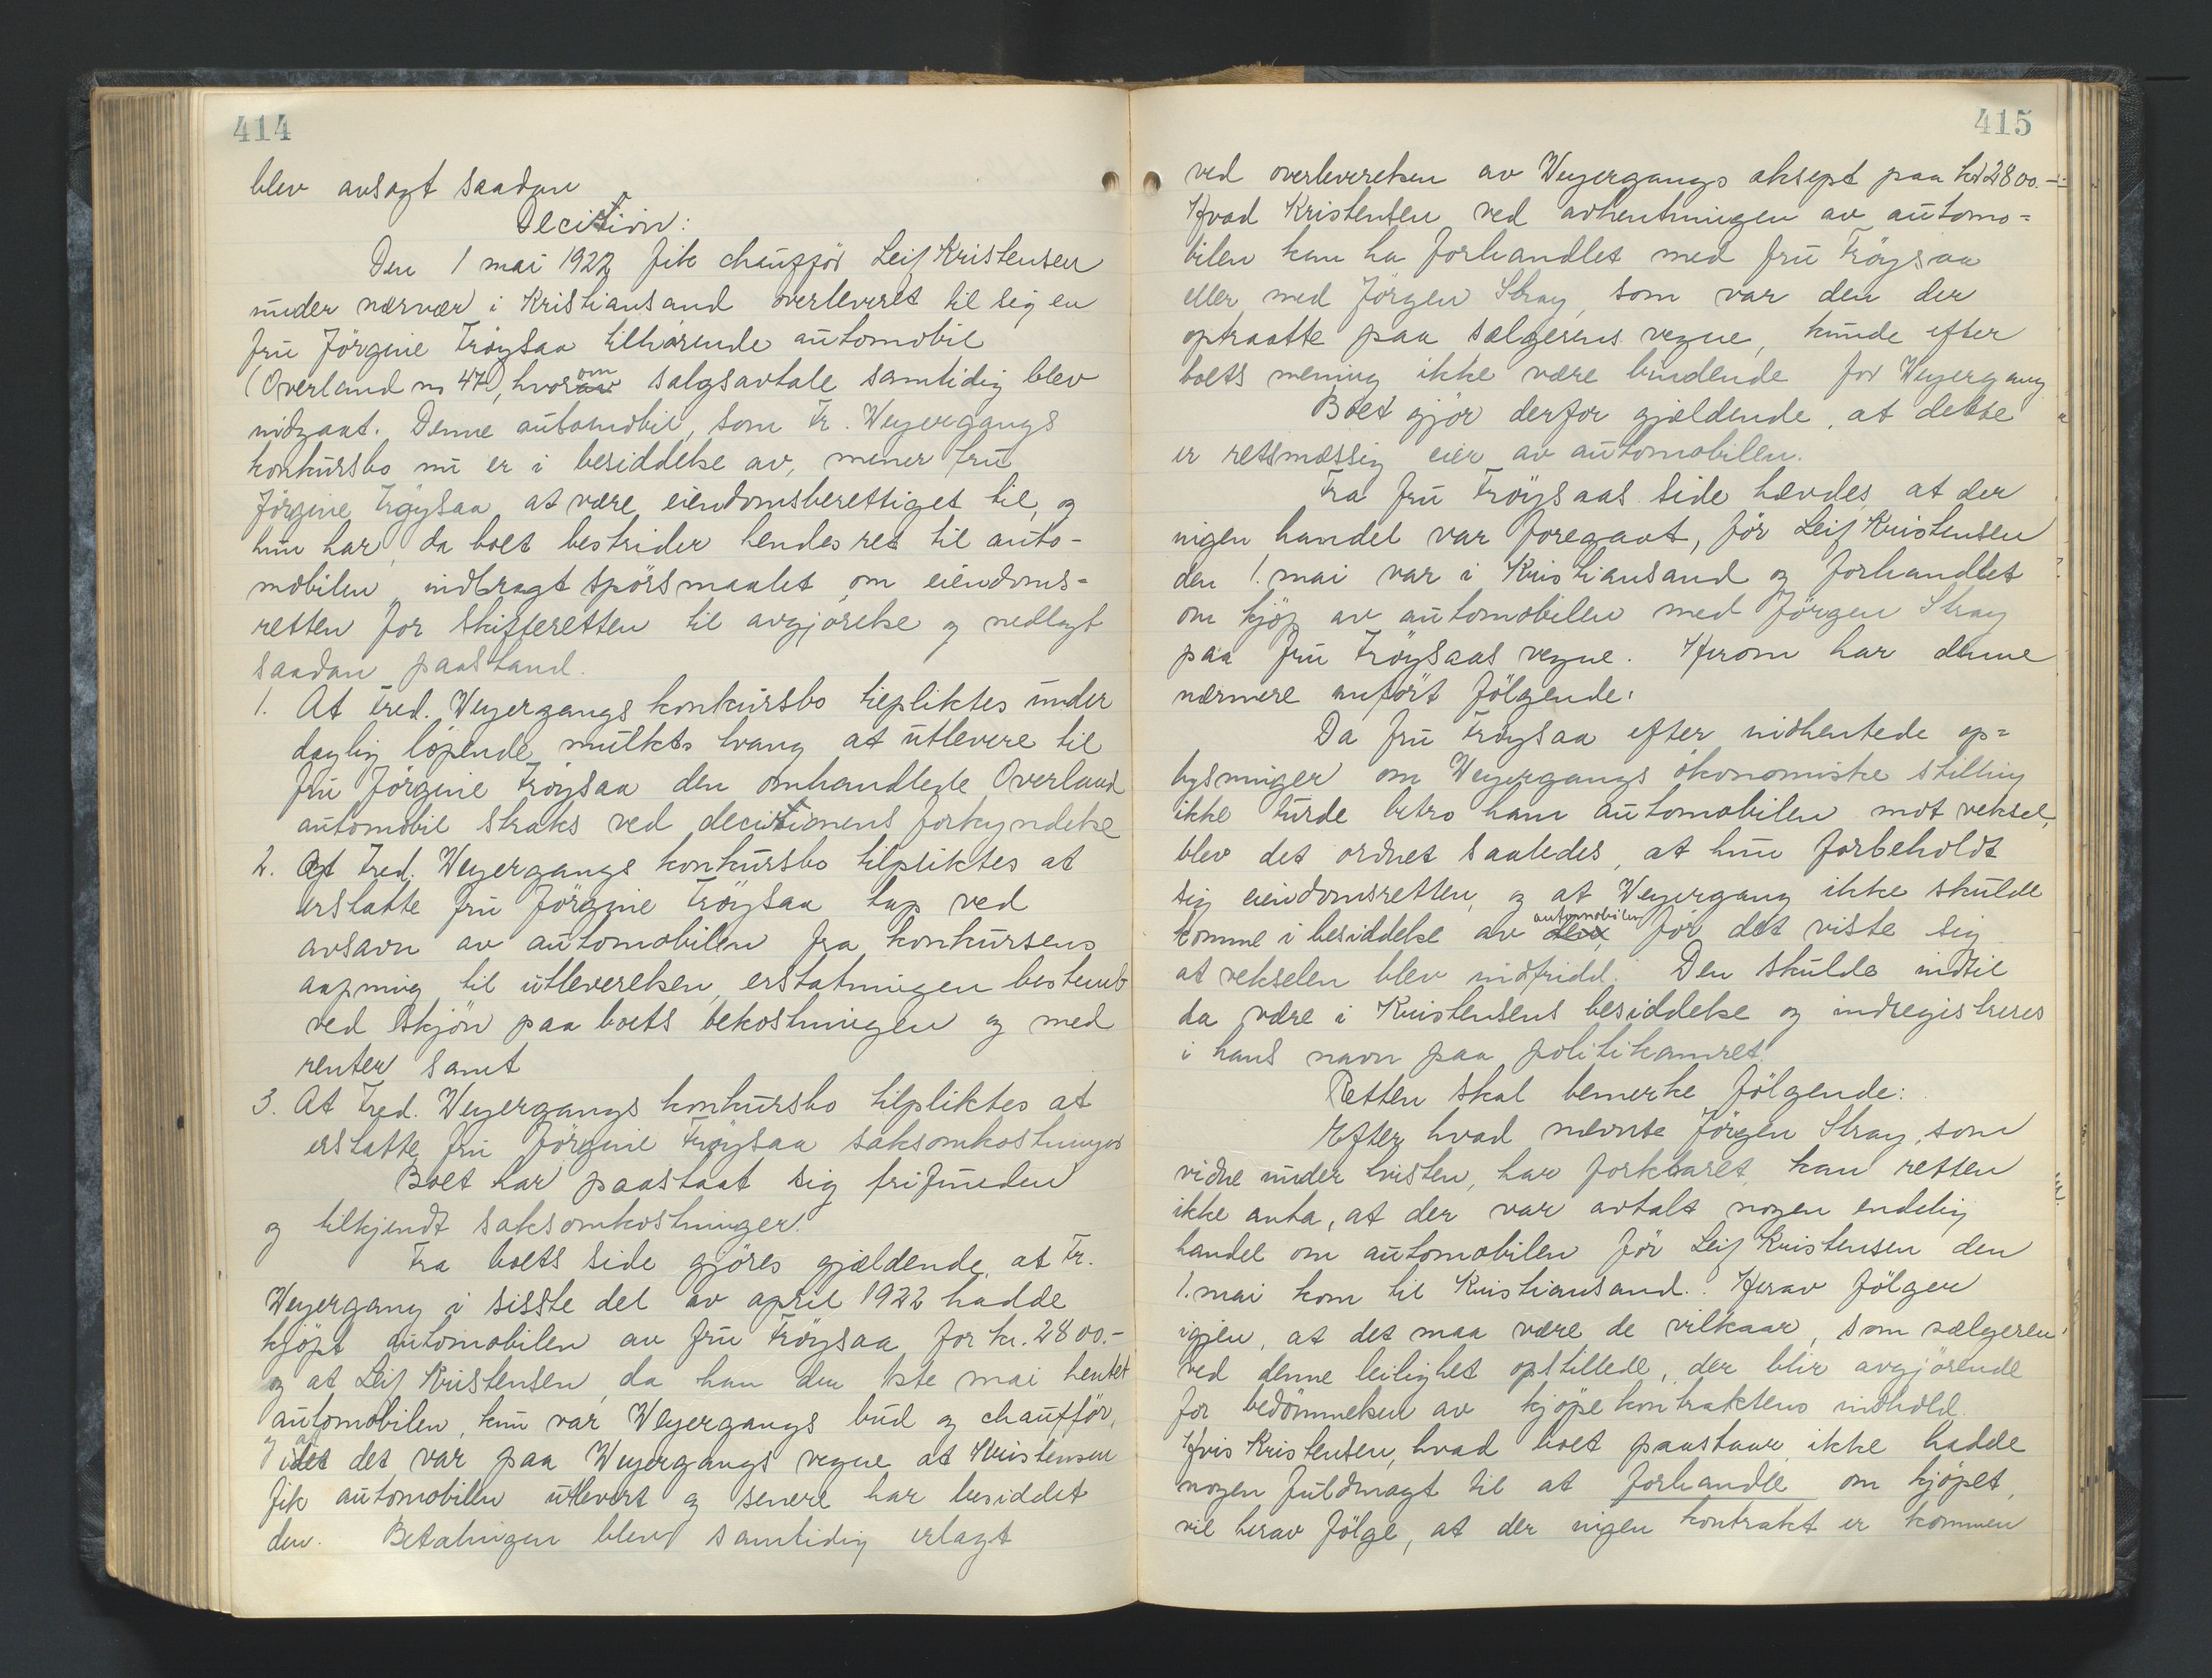 414
blev avsagt saadan
Decision:
Den 1 mai 1922 fik chauffør Leif Kristensen
under nærvær i Kristiansand overleveret til sig en
fru Jörgine Tröysaa tilhörende automobil
(Overland m 47), hvorom salgsavtale samtidig blev
indgaat. Denne automobil, som Fr. Weyergangs
konkursbo nu er i besiddelse av, mener fru
Jörgine Tröysaa at være eiendomsberettiget til, og
hun har, da boet bestrider hendes ret til auto-
mobilen, indbragt spörsmaalet om eiendoms=
retten for skifteretten til avgjörelse og nedlagt
saadan paastand.
1. At Fred. Weyergangs konkursbo tilpliktes under
daglig löpende mulkts tvang at utlevere til
fru Jörgine Tröysaa den omhandlede Overland
automobil straks ved decisionens forkyndelse
2. At Fred. Weyergangs konkursbo tilpliktes at
erstatte fru Jörgine Tröysaa tap ved
avsavn av automobilen fra konkursens
aapning til utleverelsen, erstatningen bestemt
ved skjön paa boets bekostningen og med
renter samt
3. At Fred. Weyergangs konkursbo tilpliktes at
erstatte fru Jörgine Tröysaa saksomkostninger
Boet har paastaat sig frifunden
og tilkjendt saksomkostninger.
Fra boets side gjöres gjældende, at Fr.
Weyergang i sisste del av april 1922 hadde
kjöpt automobilen av fru Tröysaa for kr. 2800.-
og at Leif Kristensen, da han den 1ste mai hentet
automobilen, kun var Weyergangs bud og chaufför,
og at det var paa Weyergangs vegne at Kristensen
fik automobilen utlevert og senere har besiddet
den. Betalingen blev samtidig erlagt
415
ved overleverelsen av Weyergangs aksept paa kr 2800.-
Hvad Kristensen ved avhentningen av automo=
bilen kan ha forhandlet med fru Tröysaa
eller med Jörgen Stray, som var den der
optraatte paa sælgerens vegne, kunde efter
boets mening ikke være bindende for Weyergang
Boet gjör derfor gjældende, at dette
er retsmæssig eier av automobilen.
Fra fru Tröysaas side hævdes, at der
ingen handel var foregaat, för Leif Kristensen
den 1. mai var i Kristiansand og forhandlet
om kjöp av automobilen med Jörgen Stray
paa fru Tröysaas vegne. Herom har denne
nærmere anfört fölgende:
Da fru Tröysaa efter indhentede op=
lysninger om Weyergangs ökonomiske stilling
ikke turde betro ham automobilen mot veksel,
blev det ordnet saaledes, at hun forbeholdt
sig eiendomsretten, og at Weyergang ikke skulde
komme i besiddelse av automobilen för det viste sig
at vekselen blev indfridd. Den skulde indtil
da være i Kristensens besiddelse og indregistreres
i hans navn paa politikamret.
Retten skal bemerke fölgende:
Efter hvad nævnte Jörgen Stray, som
vidne under tvisten, har forklaret, kan retten
ikke anta, at der var avtalt nogen endelig
handel om automobilen för Leif Kristensen den
1. mai kom til Kristiansand. Herav fölger
igjen, at det maa være de vilkaar, som sælgeren
ved denne leilighet opstillede, der blir avgjörende
for bedömmelsen av kjöpekontraktens indhold.
Hvis Kristensen, hvad boet paastaar, ikke hadde
nogen fuldmagt til at forhandle om kjöpet,
vil herav fölge, at der ingen kontrakt er kommen